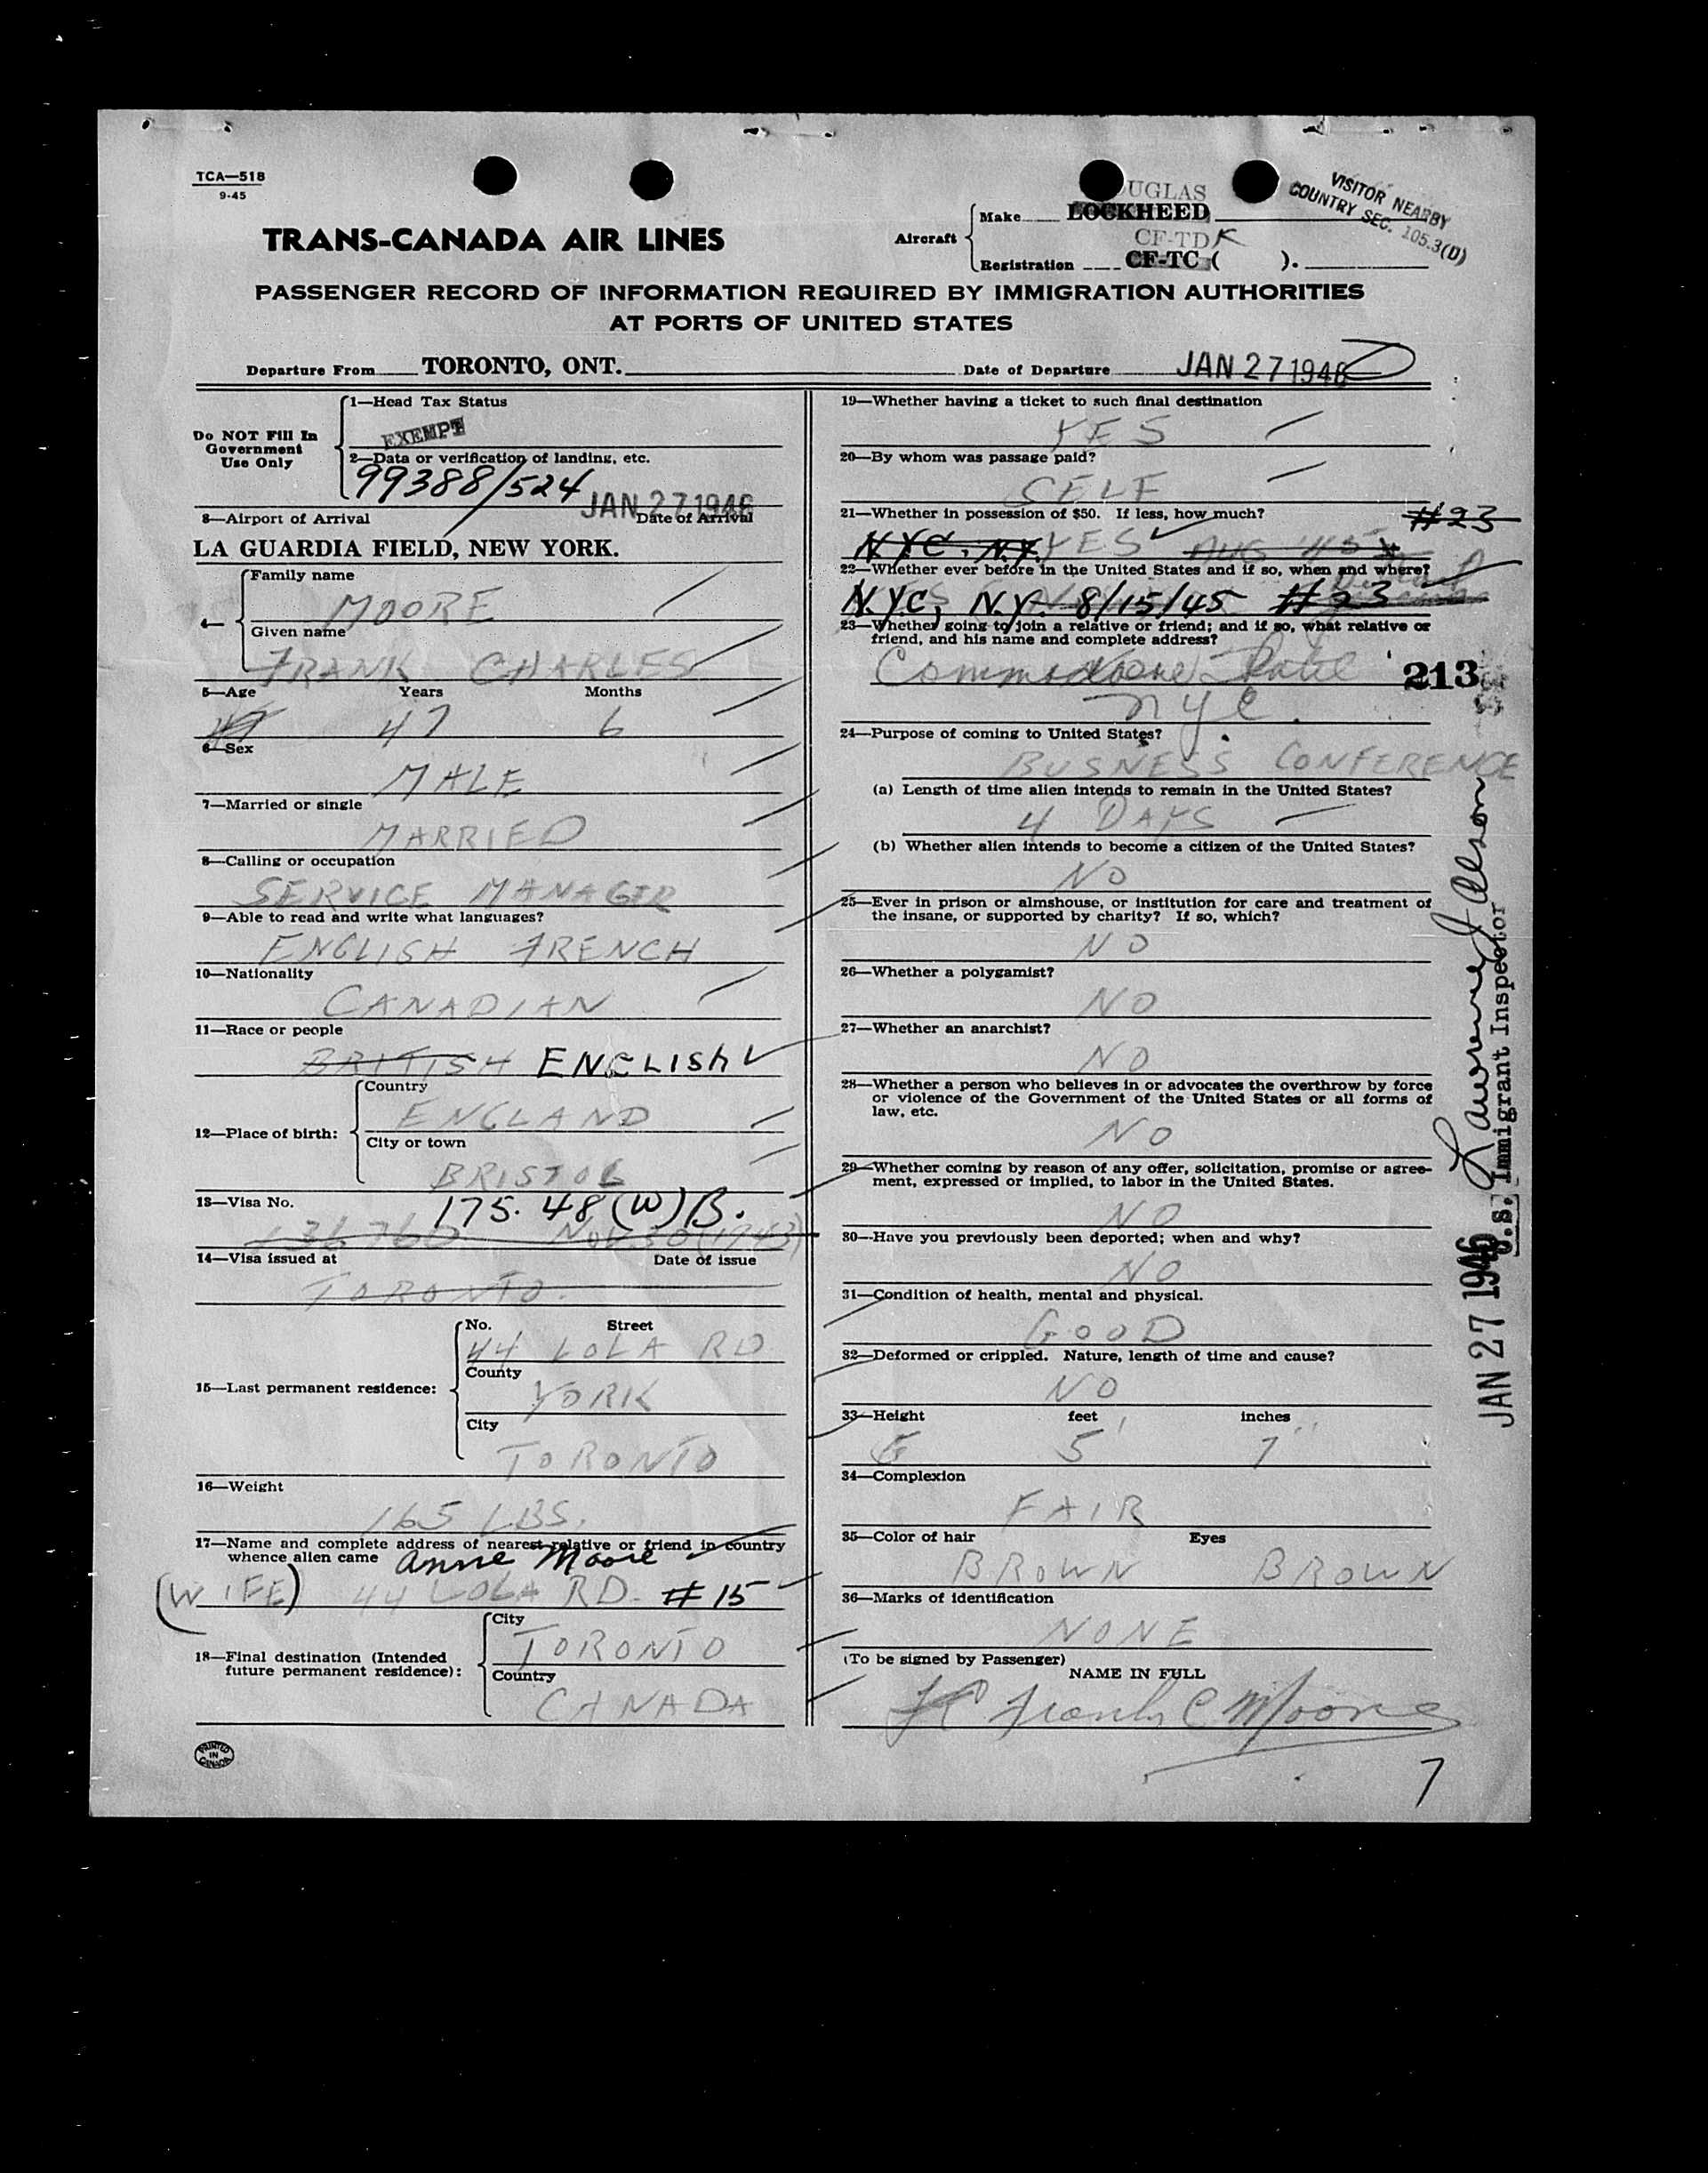 TCA—518
9-45
VISITOR NEARBY
COUNTRY SEC. 105.3(D)
UGLAS
Make LOCKHEED
TRANS-CANADA AIR LINES
Aircraft
CF-TDK
Registration CF-TC ( ).
PASSENGER RECORD OF INFORMATION REQUIRED BY IMMIGRATION AUTHORITIES
AT PORTS OF UNITED STATES
Departure From TORONTO, ONT. Date of Departure JAN 27 1946
Do NOT Fill In
Government
Use Only
1—Head Tax Status
EXEMPT
2—Data or verification of landing, etc.
99388/524 JAN 27 1946
3—Airport of Arrival Date of Arrival
LA GUARDIA FIELD, NEW YORK.
4—
Family name
MOORE
Given name
FRANK CHARLES
5—Age Years Months
47 47 6
6—Sex
MALE
7—Married or single
MARRIED
8—Calling or occupation
SERVICE MANAGER
9—Able to read and write what languages?
ENGLISH FRENCH
10—Nationality
CANADIAN
11—Race or people
BRITISH ENGLISH
12—Place of birth:
Country
ENGLAND
City or town
BRISTOL
13—Visa No. 175.48(W)B.
136760 NOV. 30 (1943)
14—Visa issued at Date of issue
TORONTO.
15—Last permanent residence:
No. Street
44 LOLA RD
County
YORK
City
TORONTO
16—Weight
165 LBS.
17—Name and complete address of nearest relative or friend in country
whence alien came Anne Moore
(WIFE) 44 LOLA RD. #15
18—Final destination (Intended
future permanent residence):
City
TORONTO
Country
CANADA
PRINTED
IN
CANADA
19—Whether having a ticket to such final destination
YES
20—By whom was passage paid?
SELF
21—Whether in possession of $50. If less, how much? #23
N.Y.C. N.Y. YES AUG '45
22—Whether ever before in the United States and if so, when and where?
N.Y.C, N.Y. 8/15/45 #23
23—Whether going to join a relative or friend; and if so, what relative or
friend, and his name and complete address?
Commodore Hotel 213
NYC.
24—Purpose of coming to United States?
BUSNESS CONFERENCE
(a) Length of time alien intends to remain in the United States?
4 DAYS
(b) Whether alien intends to become a citizen of the United States?
NO
25—Ever in prison or almshouse, or institution for care and treatment of
the insane, or supported by charity? If so, which?
NO
26—Whether a polygamist?
NO
27—Whether an anarchist?
NO
28—Whether a person who believes in or advocates the overthrow by force
or violence of the Government of the United States or all forms of
law, etc.
NO
29—Whether coming by reason of any offer, solicitation, promise or agree-
ment, expressed or implied, to labor in the United States.
NO
30—Have you previously been deported; when and why?
NO
31—Condition of health, mental and physical.
GOOD
32—Deformed or crippled. Nature, length of time and cause?
NO
33—Height feet inches
5' 7''
34—Complexion
FAIR
35—Color of hair Eyes
BROWN BROWN
36—Marks of identification
NONE
(To be signed by Passenger)
NAME IN FULL
Frank C Moore
7
JAN 27 1946
U.S. Immigrant Inspector